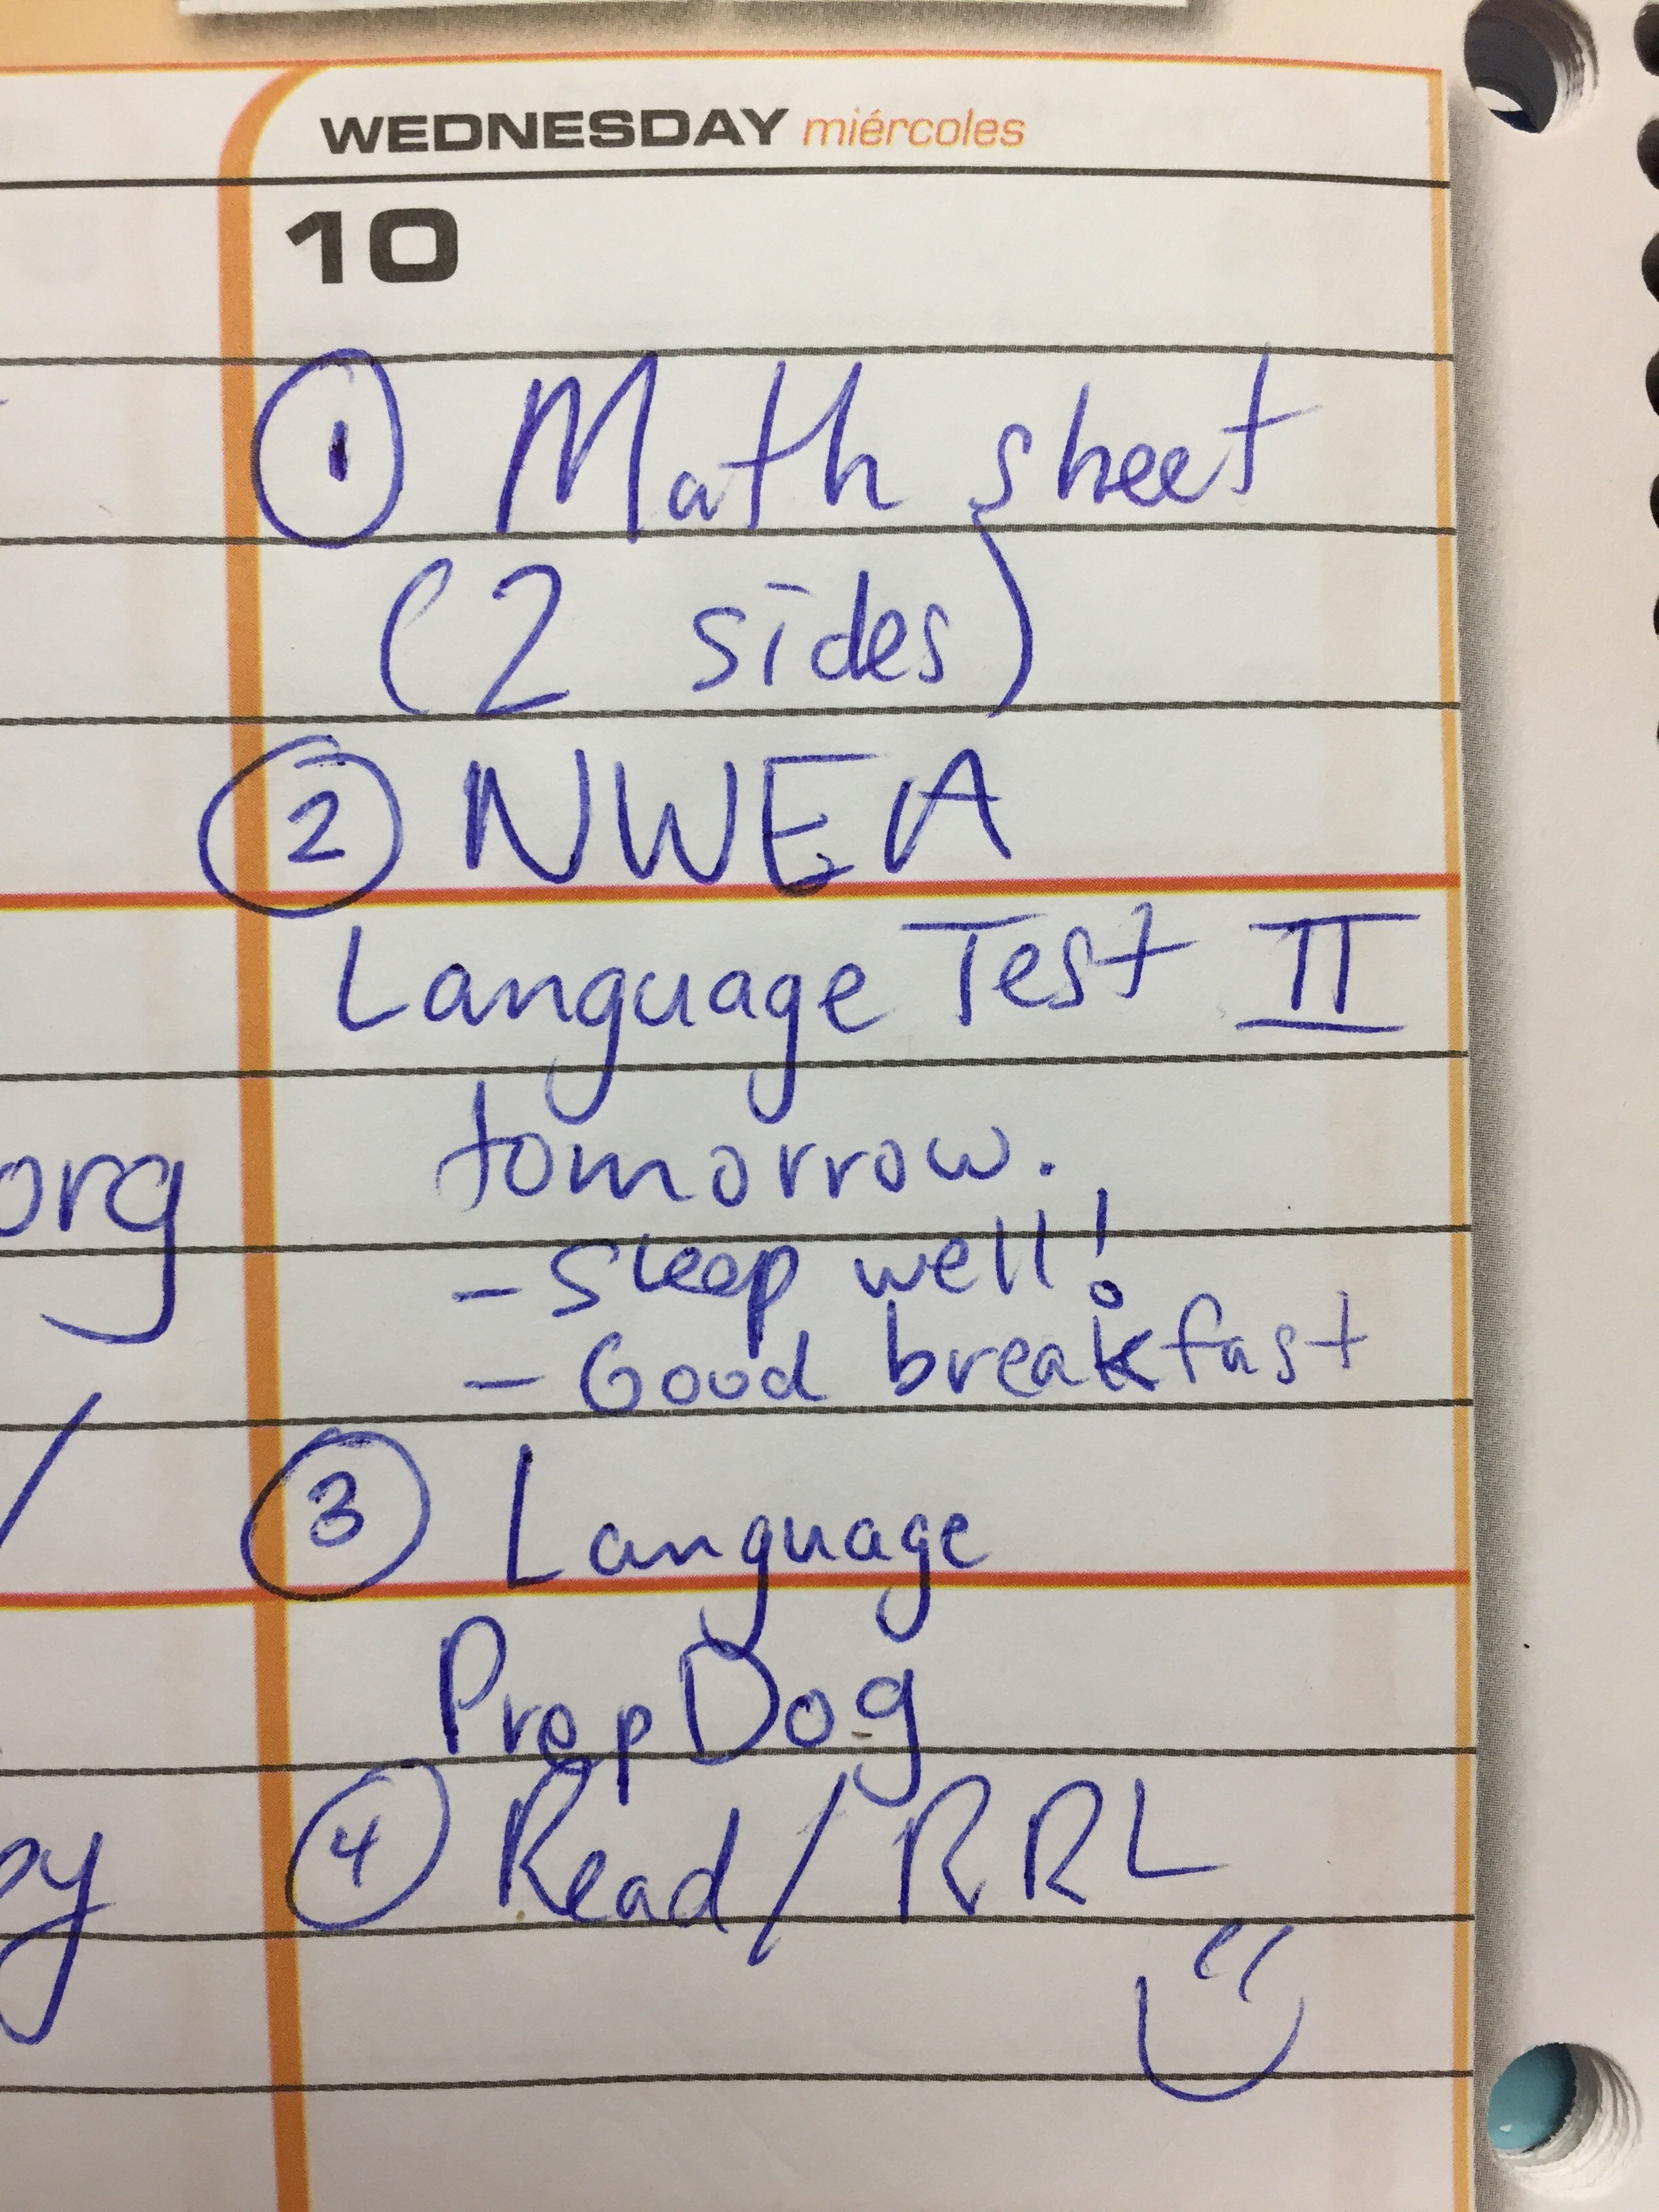 WEDNESDAY miércoles
10
① Math sheet
(2 sides)
② NWEA
Language Test II
tomorrow.
- Sleep well!
- Good breakfast
org
③ Language
PrepDog
④ Read / RRL